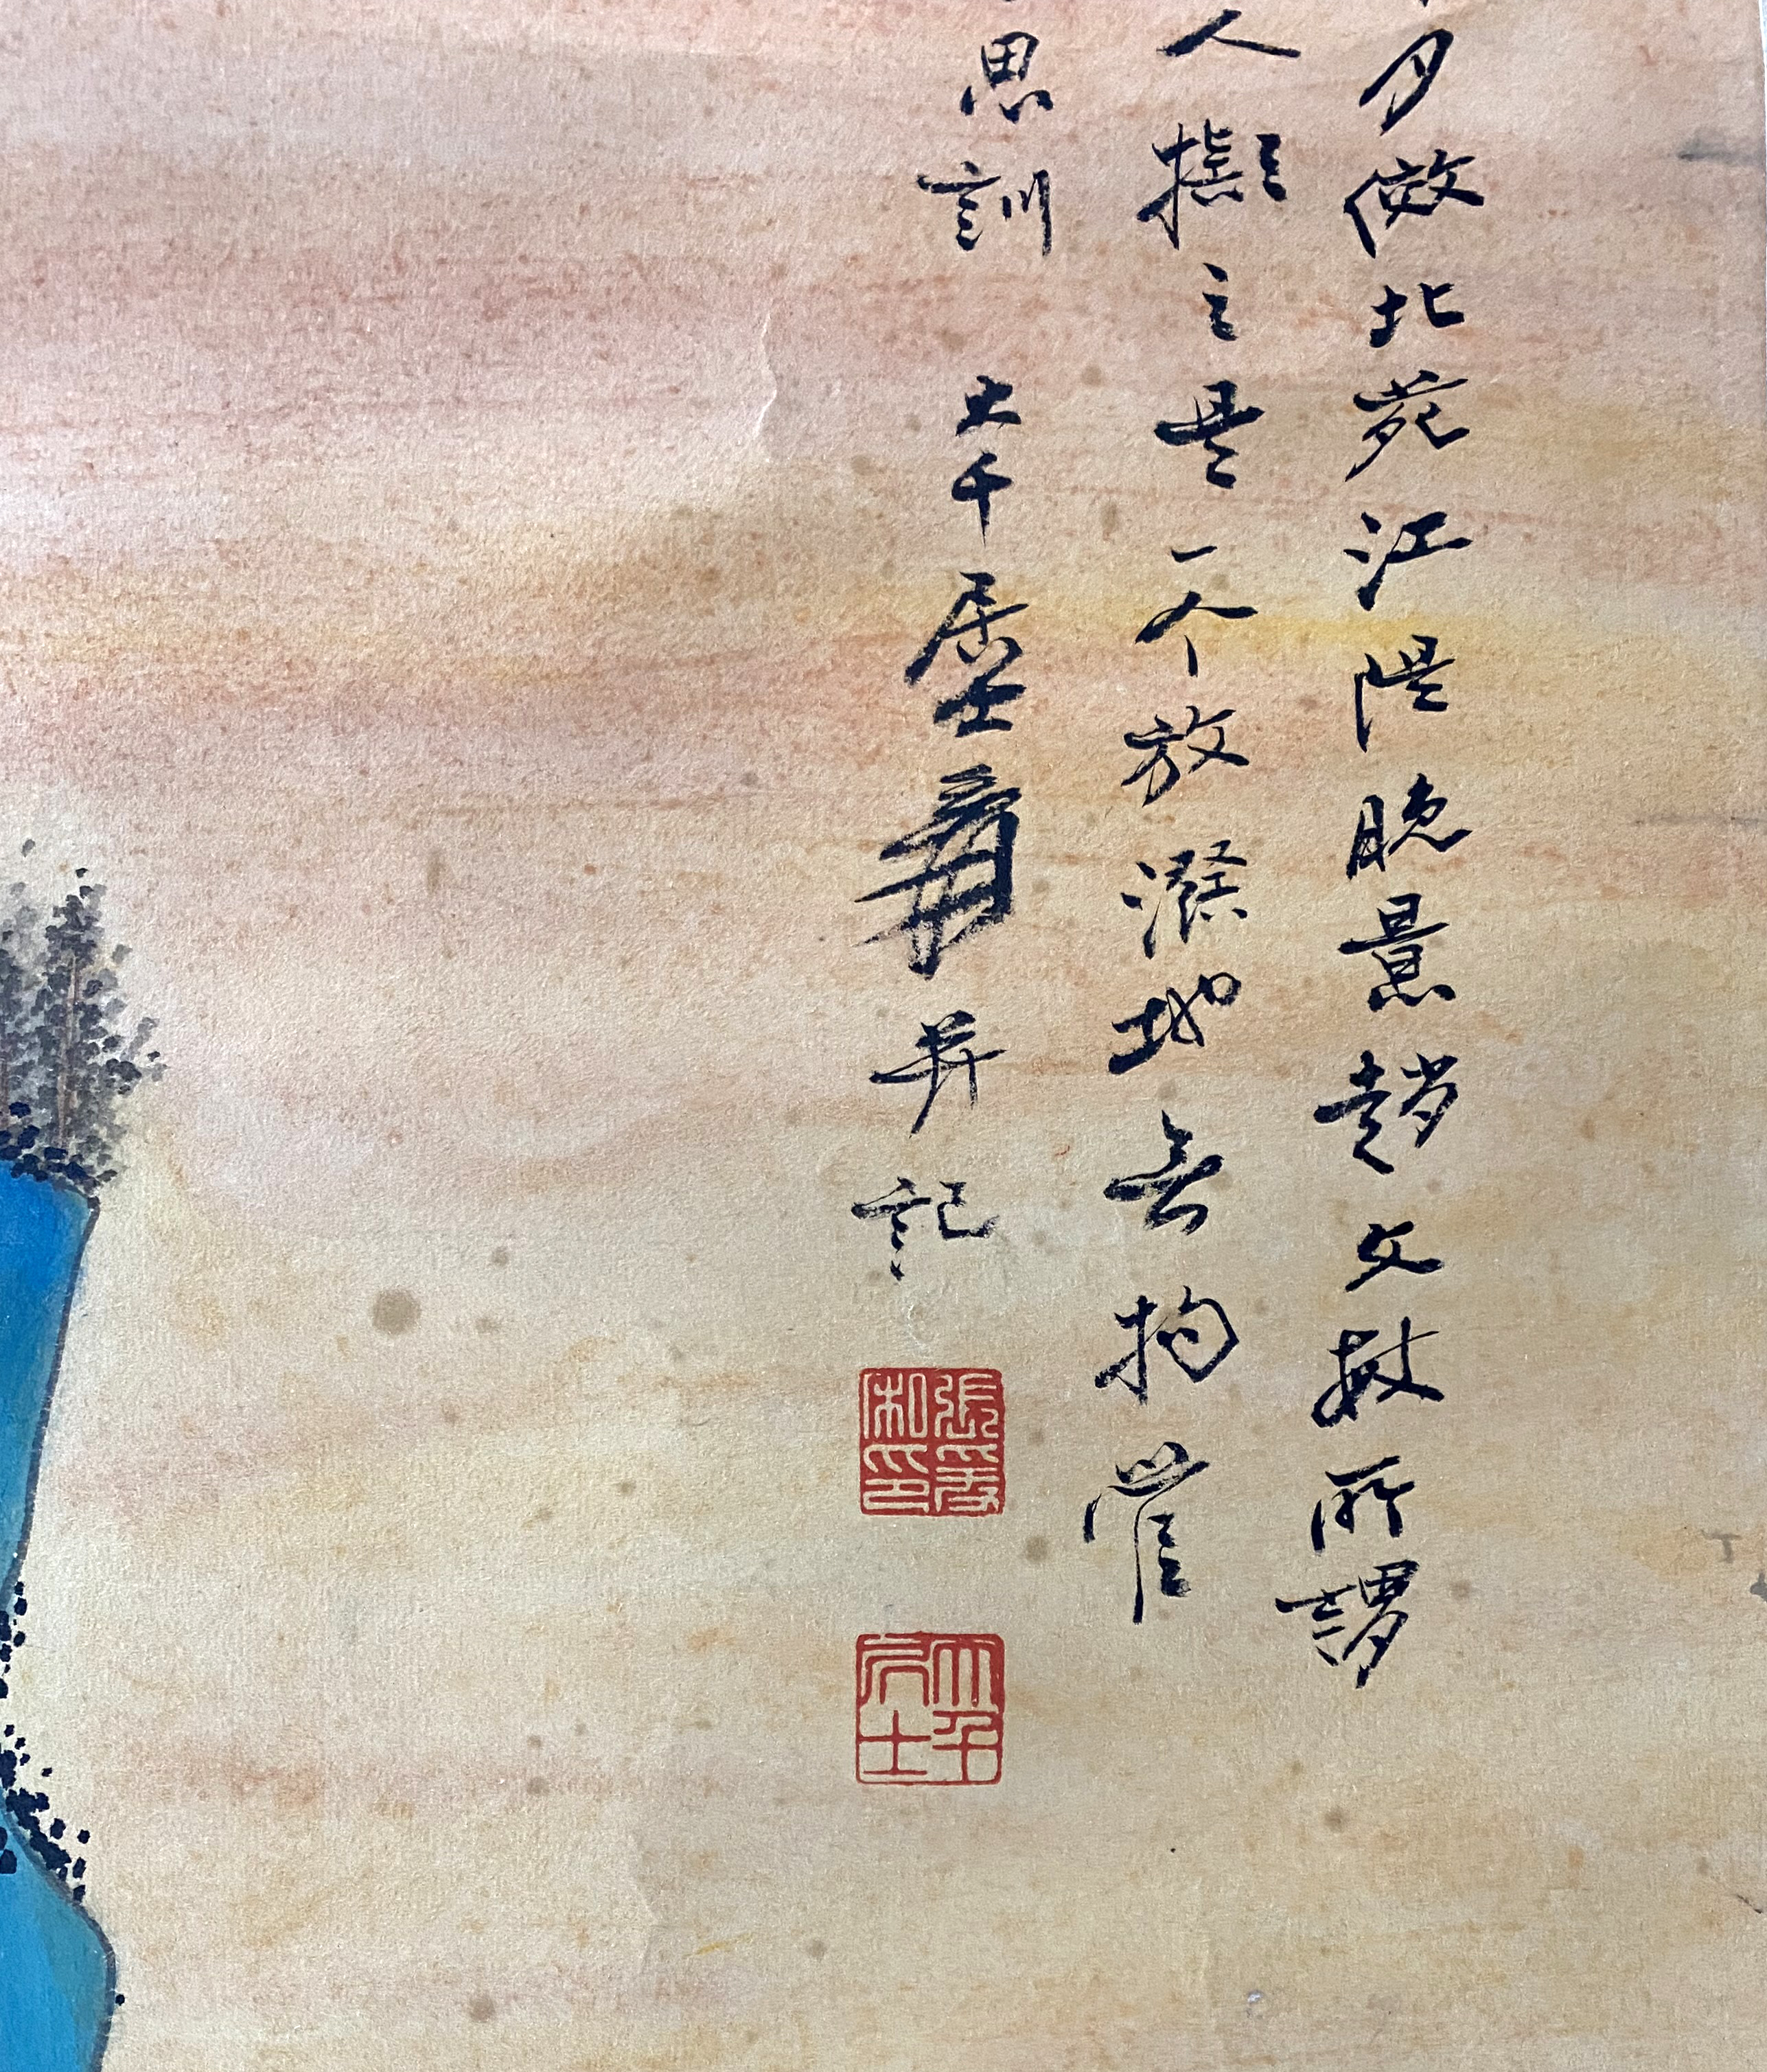 月倣北苑江隄晚景趙文敏所謂
人擬之是一个放潑地無拘管
思訓 大千居士爰并記
張爰私印
大千居士